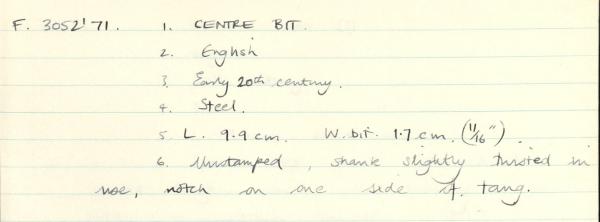 F. 3052'71. 1. CENTRE BIT.
2. English
3. Early 20th century.
4. Steel.
5. L. 9.9 cm. W. bit. 1.7 cm. (11/16").
6. Unstamped, shank slightly twisted in
use, notch on one side of tang.